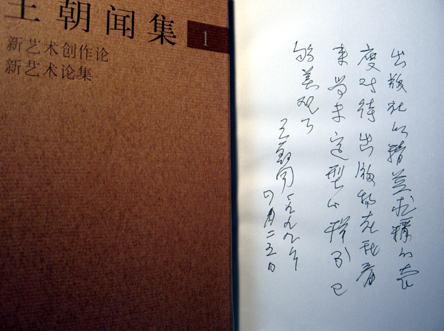 王朝闻集 1
新艺术创作论
新艺术论集
出版社以精益求精的态
度对待出版物在我看
来尚未定型的样书已
够美观了
王朝闻一九九八年
四月二五日